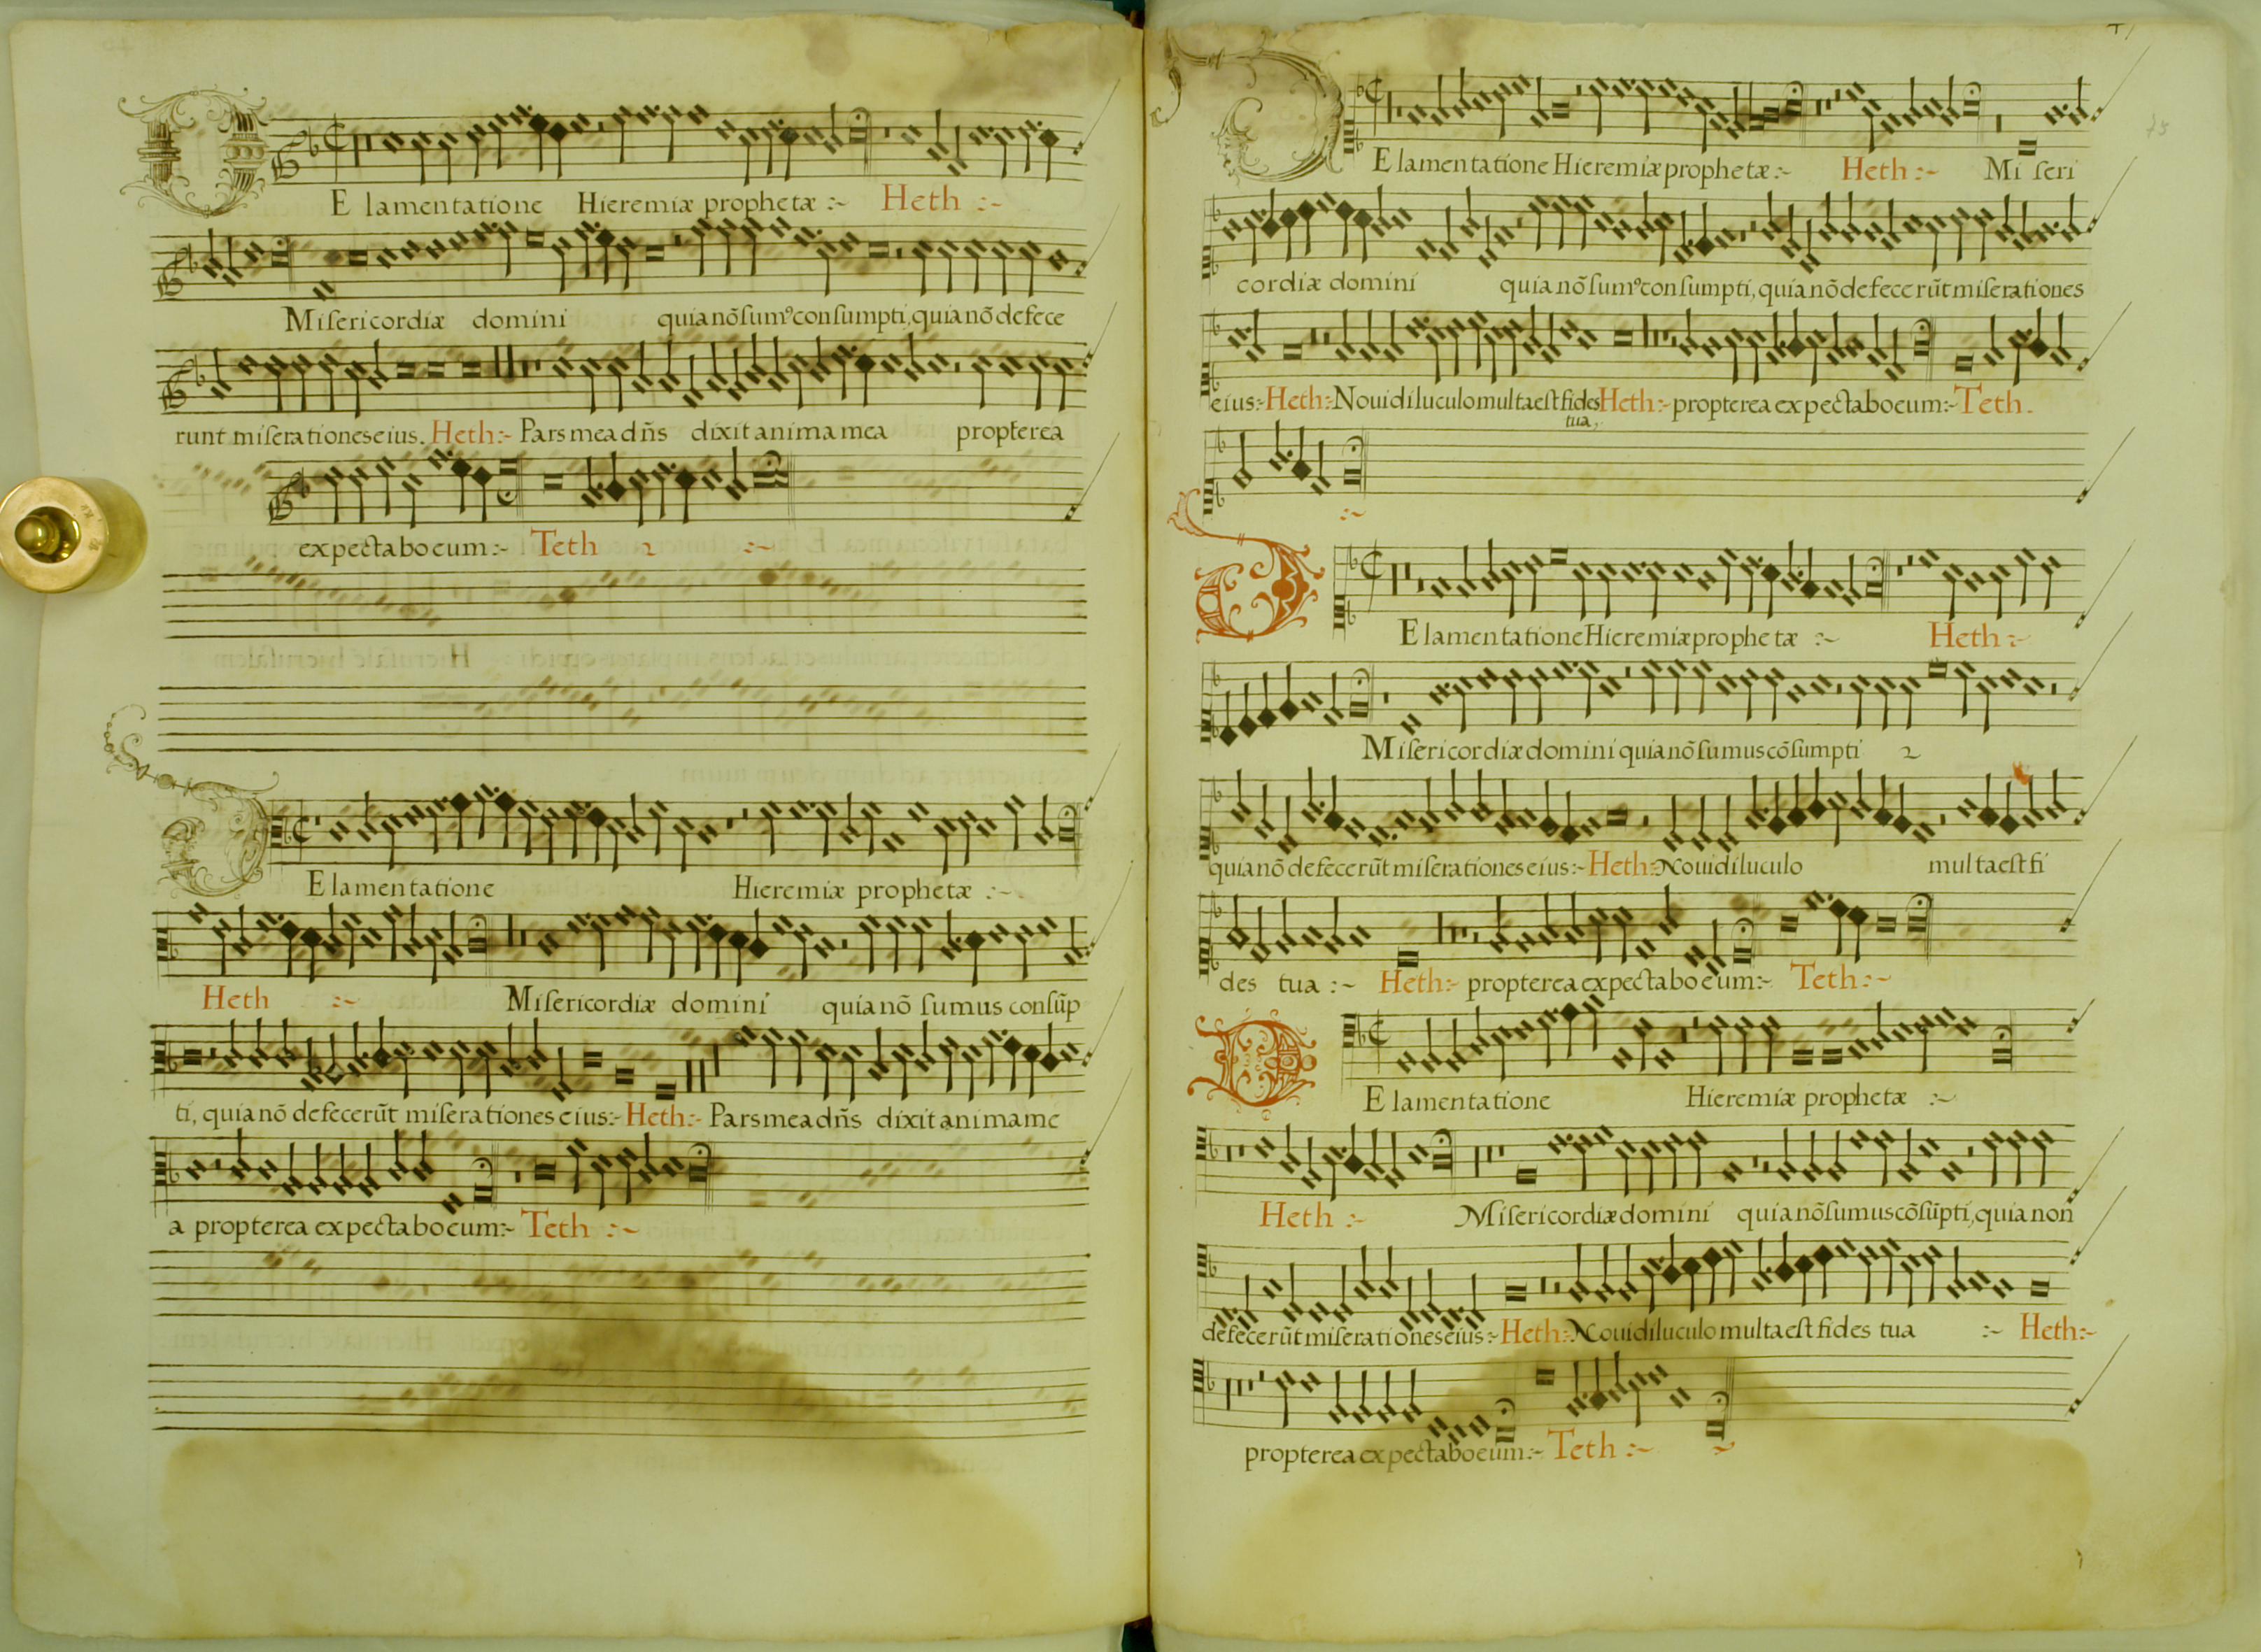 DE lamentatione Hieremiæ prophetæ :~ Heth :~
Misericordiæ domini quia nõ sumꝰ consumpti, quia nõ defece
runt miserationes eius. Heth :~ Pars mea dñs dixit anima mea propterea
expectabo eum :~ Teth 2 :~
DE lamentatione Hieremiæ prophetæ :~
Heth :~ Misericordiæ domini quia nõ sumus consũp
ti, quia nõ defecerũt miserationes eius :~ Heth :~ Pars mea dñs dixit anima me
a propterea expectabo eum :~ Teth :~
75
DE lamentatione Hieremiæ prophetæ :~ Heth :~ Miseri
cordiæ domini quia nõ sumꝰ consumpti, quia nõ defecerũt miserationes
eius :~ Heth :~ Noui diluculo multa est fides Heth :~ propterea expectabo eum :~ Teth.
tua,
:~
DE lamentatione Hieremiæ prophetæ :~ Heth :~
Misericordiæ domini quia nõ sumus cõsumpti 2
quia nõ defecerũt miserationes eius :~ Heth :~ Noui diluculo multa est fi
des tua :~ Heth :~ propterea expectabo eum :~ Teth :~
DE lamentatione Hieremiæ prophetæ :~
Heth :~ Misericordiæ domini quia nõ sumus cõsũpti, quia non
defecerũt miserationes eius :~ Heth :~ Noui diluculo multa est fides tua :~ Heth :~
propterea expectabo eum :~ Teth :~ ~